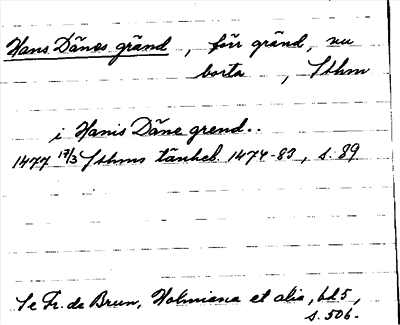 Hans Dänes gränd, förr gränd, nu
borta, Sthm
i Hanis Däne grend..
1477 17/3 Sthms tänkeb. 1474-83, s. 89
Se Fr. de Brun, Holmiana et alia, bd 5,
s. 506.